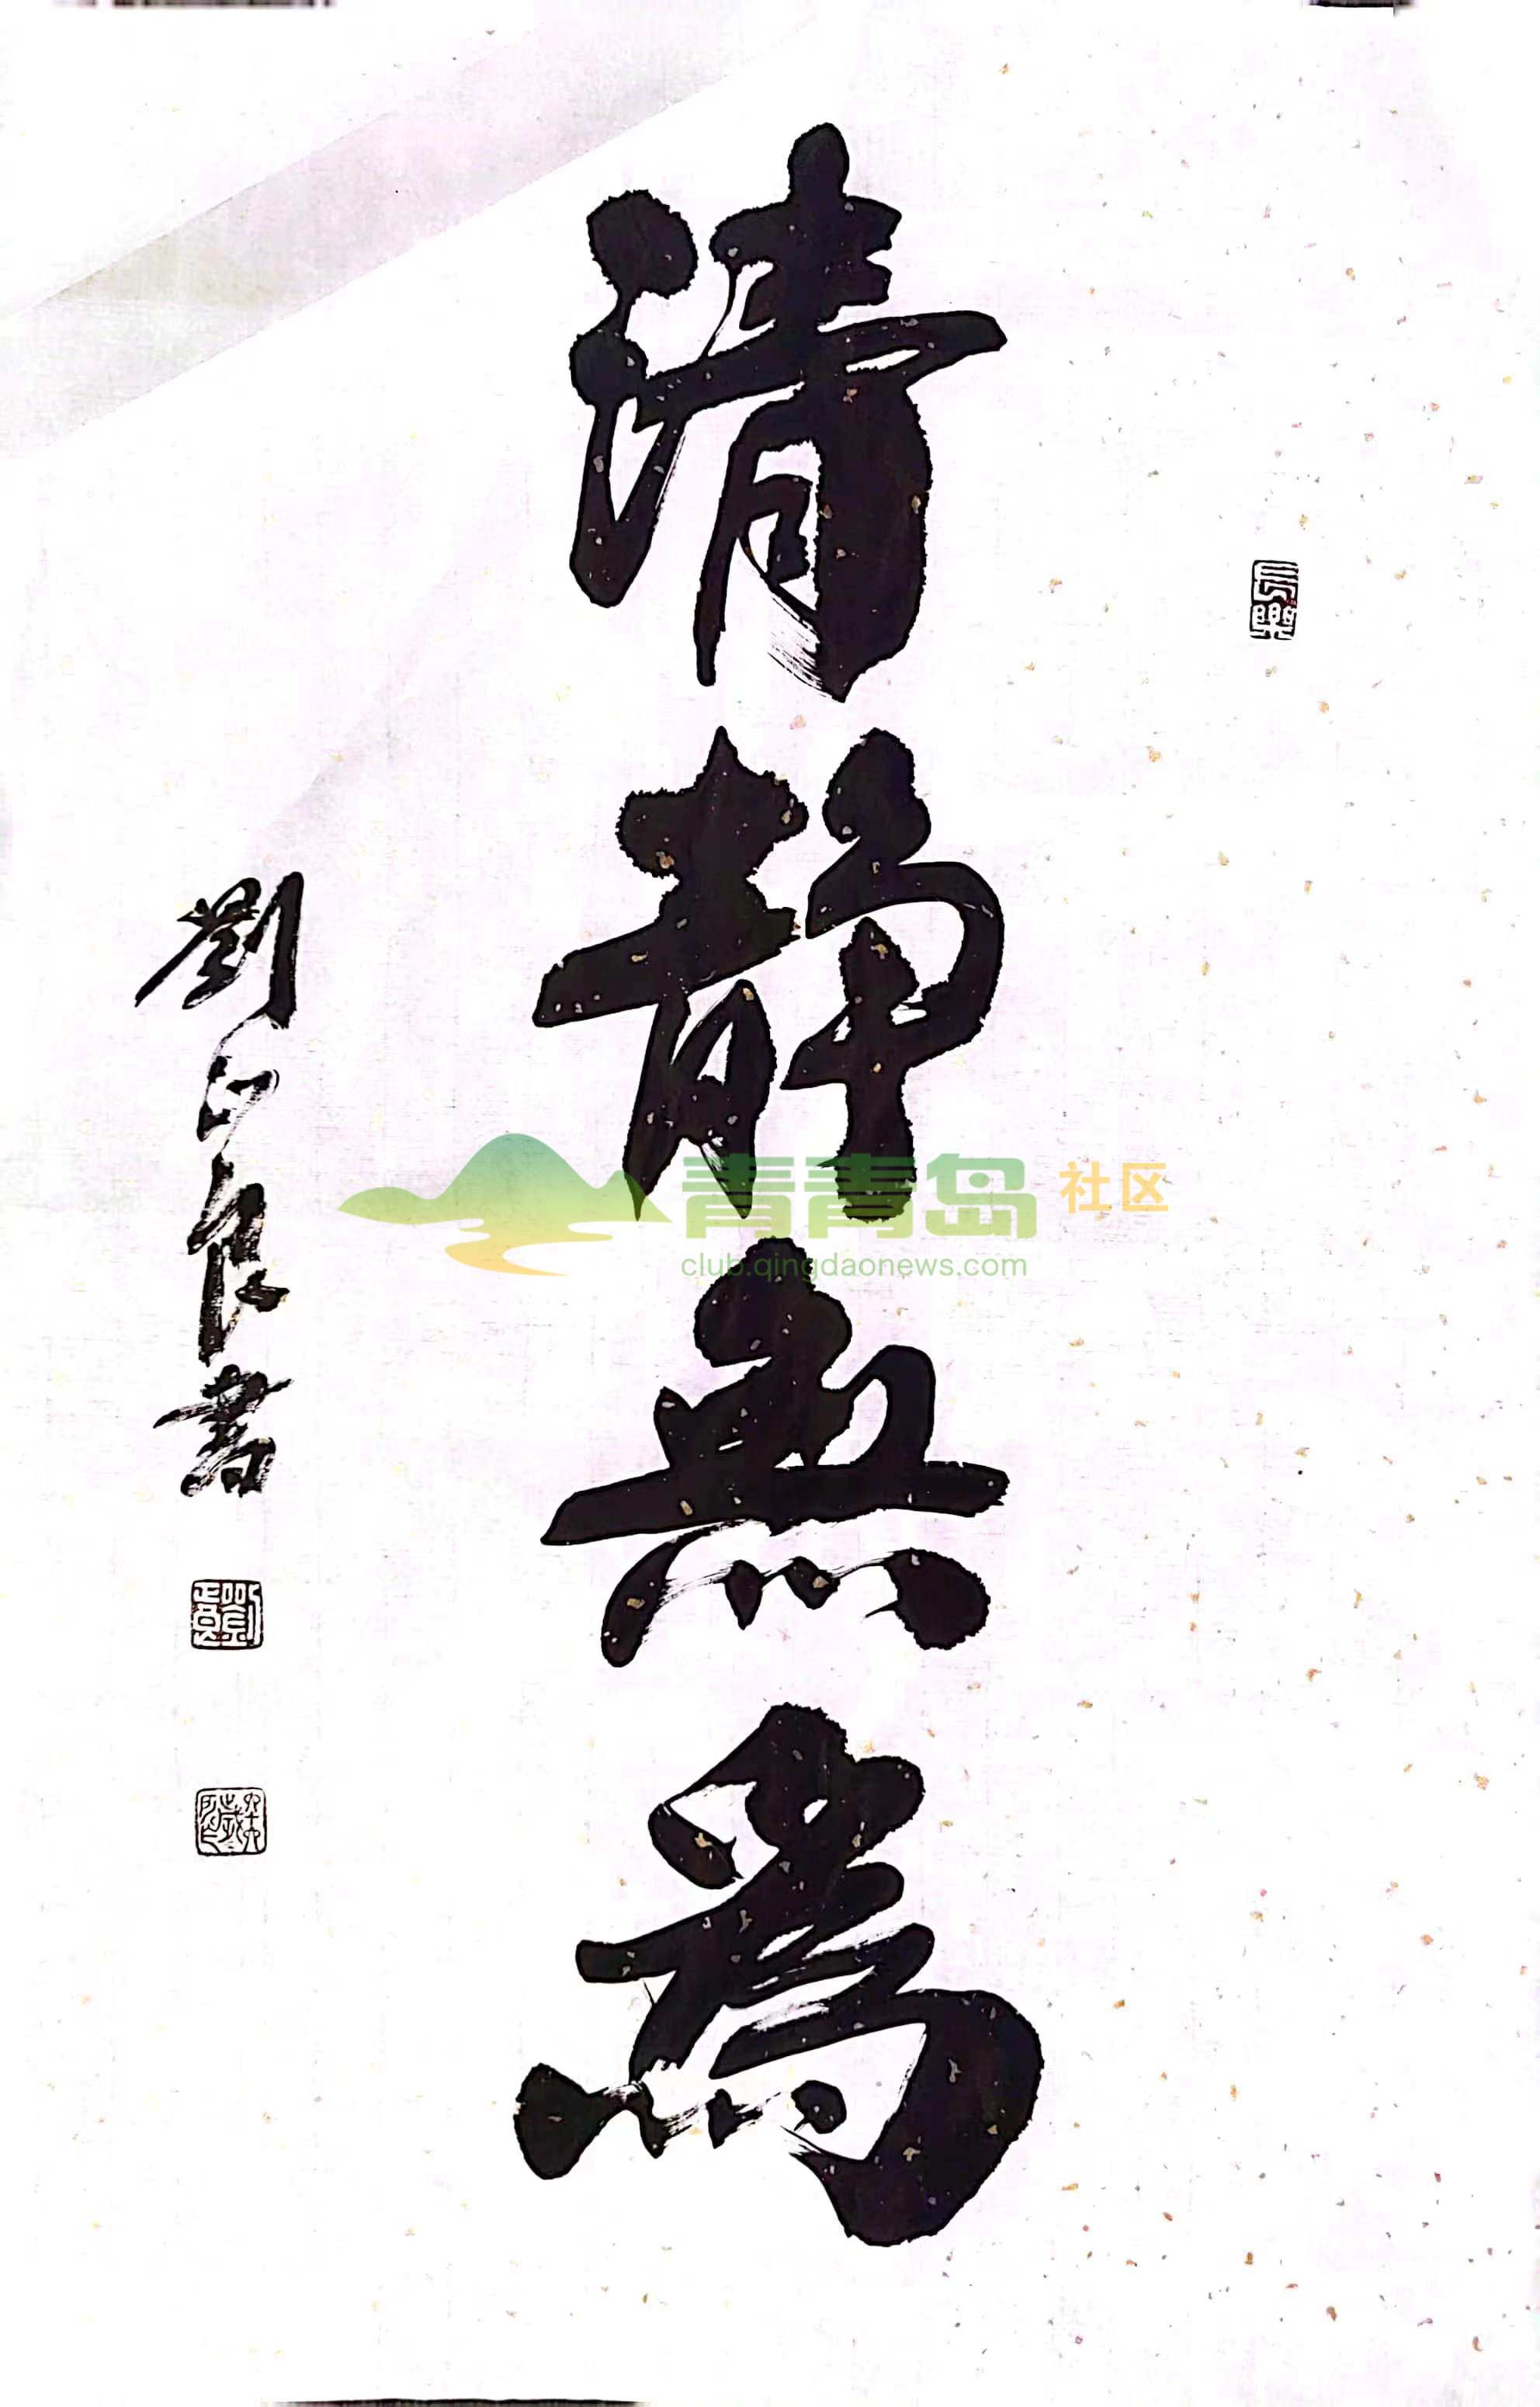 清静無為
劉
書
青青岛社区
club.qingdaonews.com